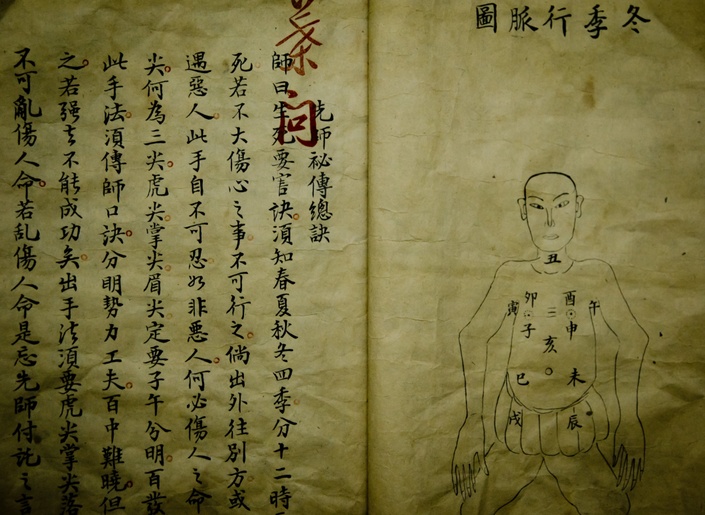 冬季行脈圖
丑
卯 酉
寅 午
子 申
亥
巳 未
戌 辰
葉問
先師祕傳總訣
師曰生死要害訣須知春夏秋冬四季分十二時
死若不大傷心之事不可行之倘出外往別方或
遇惡人此手自不可忍如非惡人何必傷人之命
尖何為三尖虎尖掌尖眉尖定要子午分明百發
此手法須傳師口訣分明勢力工夫百中難曉但
之若强去不能成功矣出手法須要虎尖掌尖落
不可亂傷人命若乱傷人命是忘先師付託之言